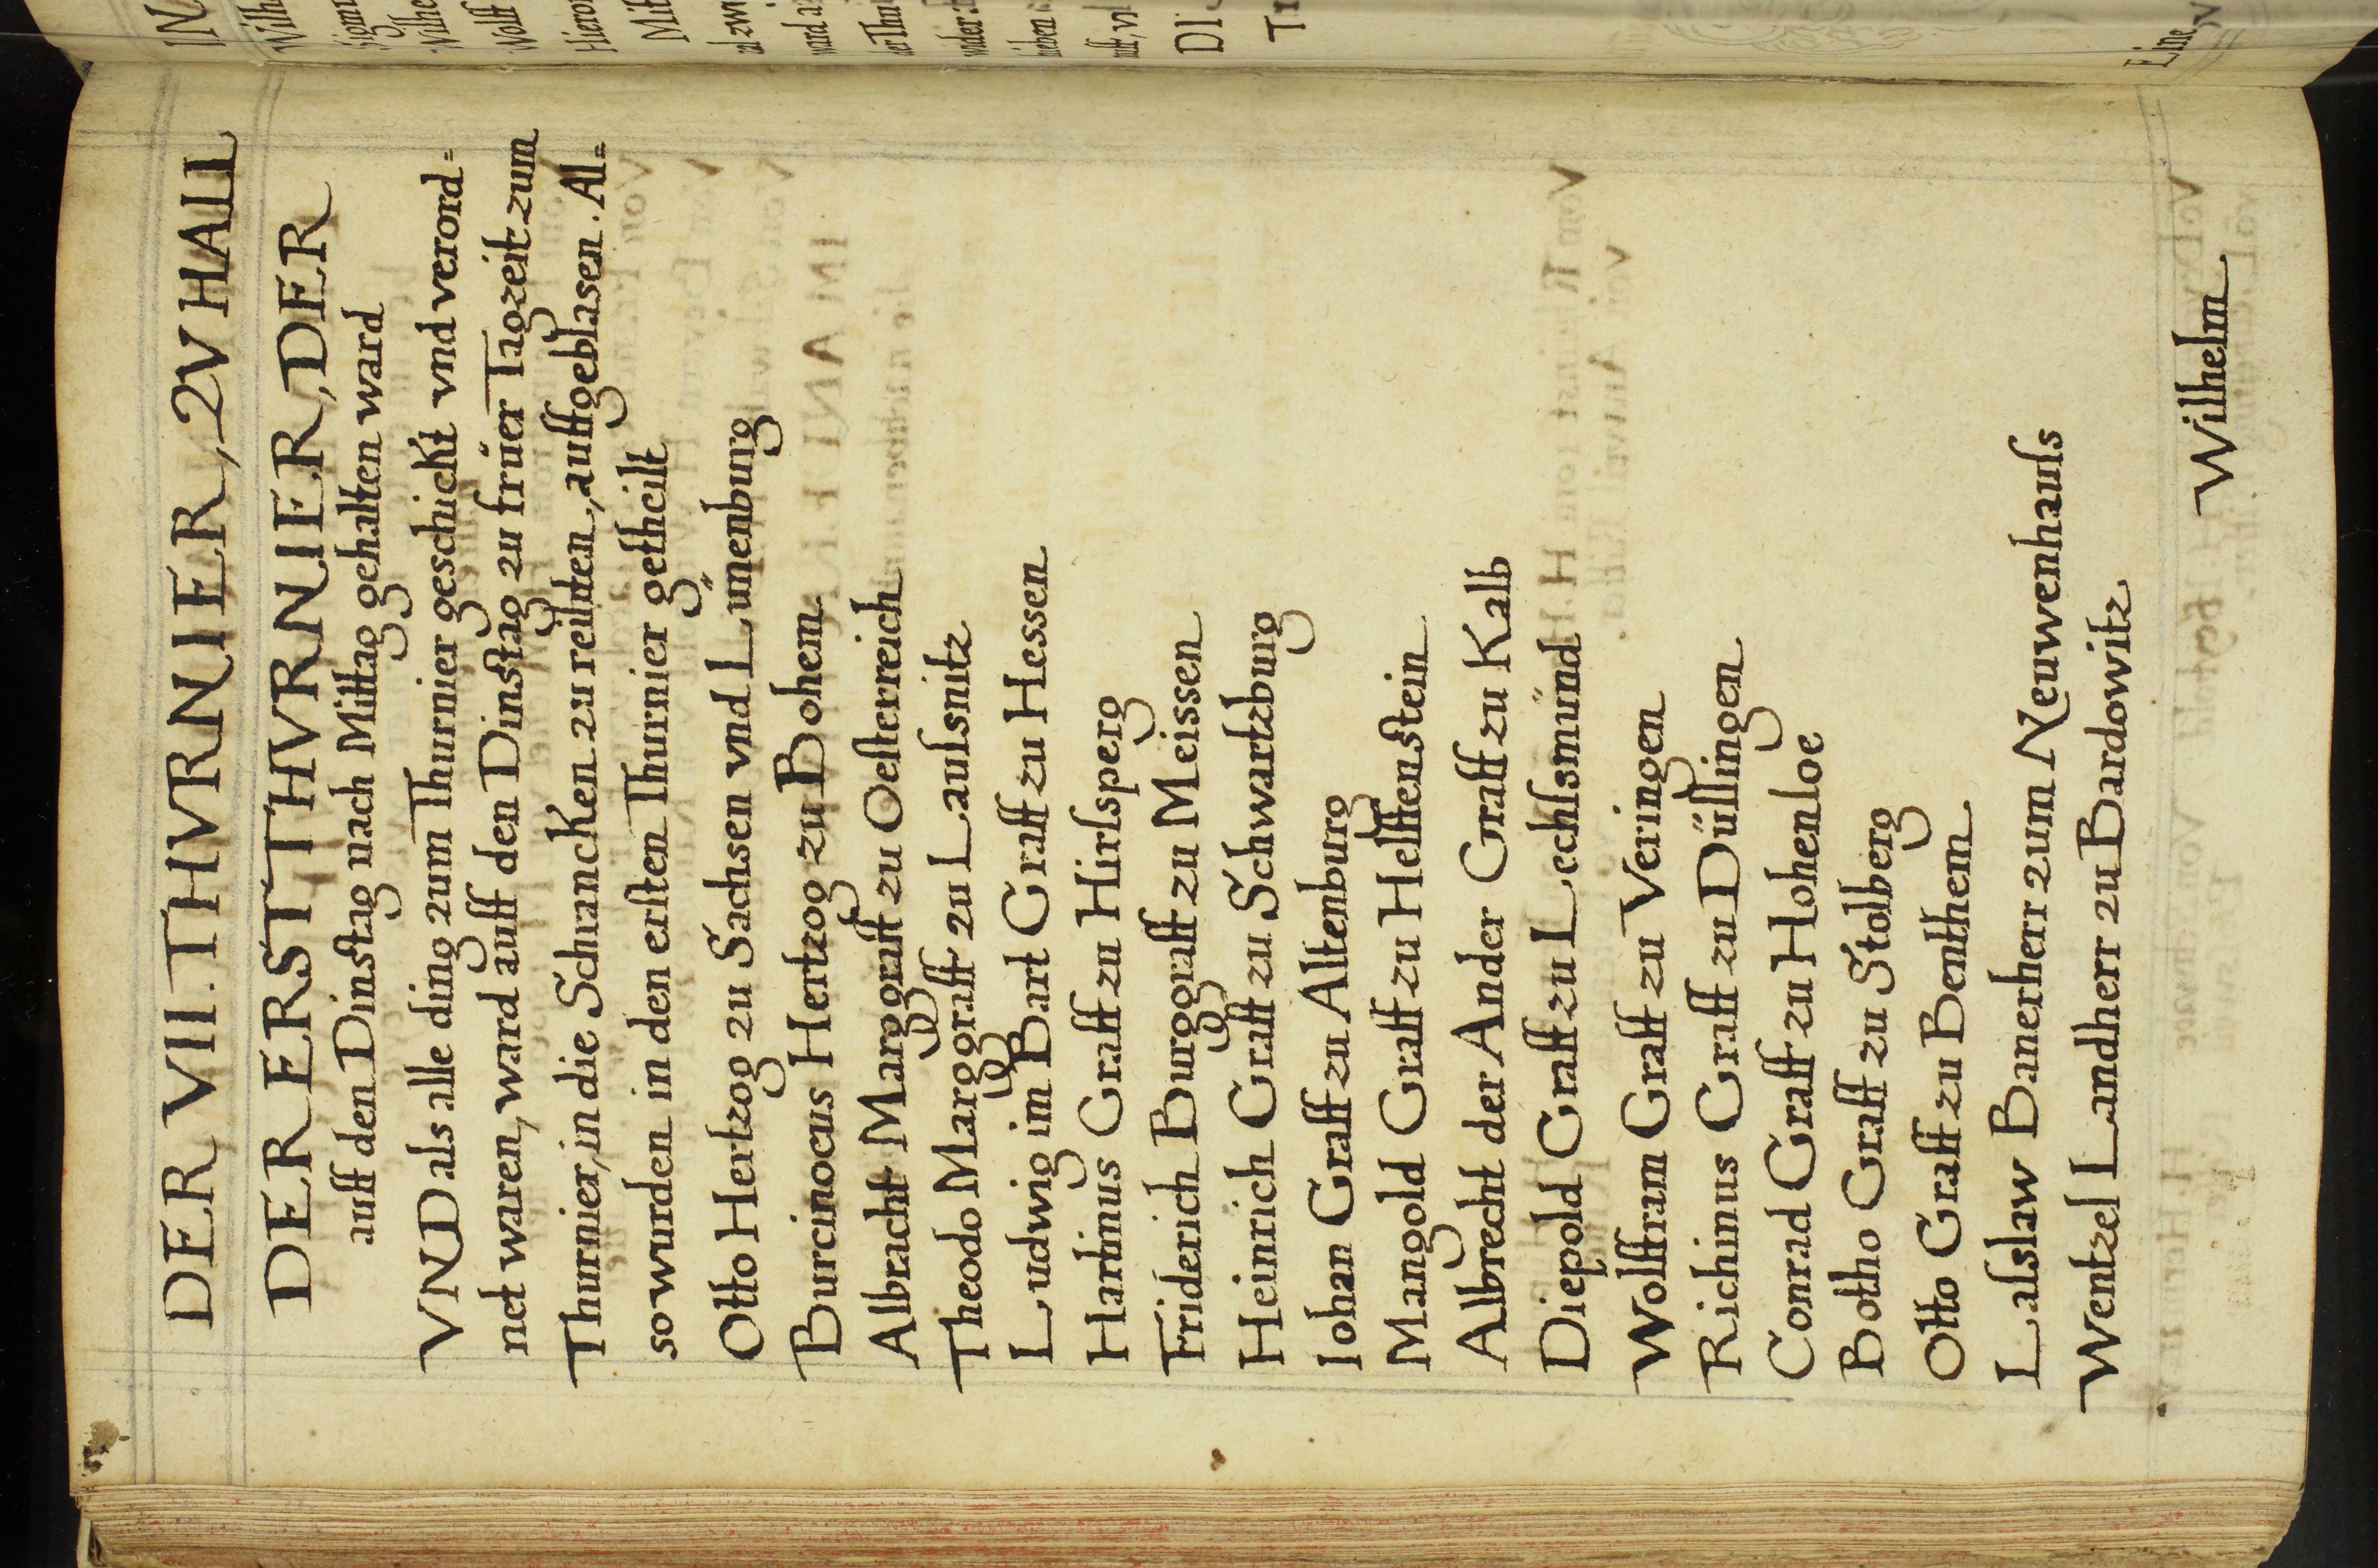 DER VII. THVRNIER, ZV HALL
DER ERST THVRNIER, DER
auff den Dinstag nach Mittag gehalten ward
VND als alle ding zum Thurnier geschickt vnd verord=
net waren, ward auff den Dinstag zu früer Tagzeit zum
Thurnier, in die Schrancken zu reitten, auffgeblasen. Al=
so wurden in den ersten Thurnier getheilt
Otto Hertzog zu Sachsen vnd Lünenburg
Burcinocus Hertzog zu Bohem
Albracht Marggraff zu Oesterreich
Theodo Marggraff zu Lausnitz
Ludwig im Bart Graff zu Hessen
Hartinus Graff zu Hirsperg
Friderich Burggraff zu Meissen
Heinrich Graff zu Schwartzburg
Iohan Graff zu Altenburg
Mangold Graff zu Helffenstein
Albrecht der Ander Graff zu Kalb
Diepold Graff zu Lechsmünd
Wolffram Graff zu Veringen
Richimus Graff zu Düllingen
Conrad Graff zu Hohenloe
Botho Graff zu Stolberg
Otto Graff zu Benthem
Laslaw Banerherr zum Neuwenhauss
Wentzel Landherr zu Bardowitz
Wilhelm